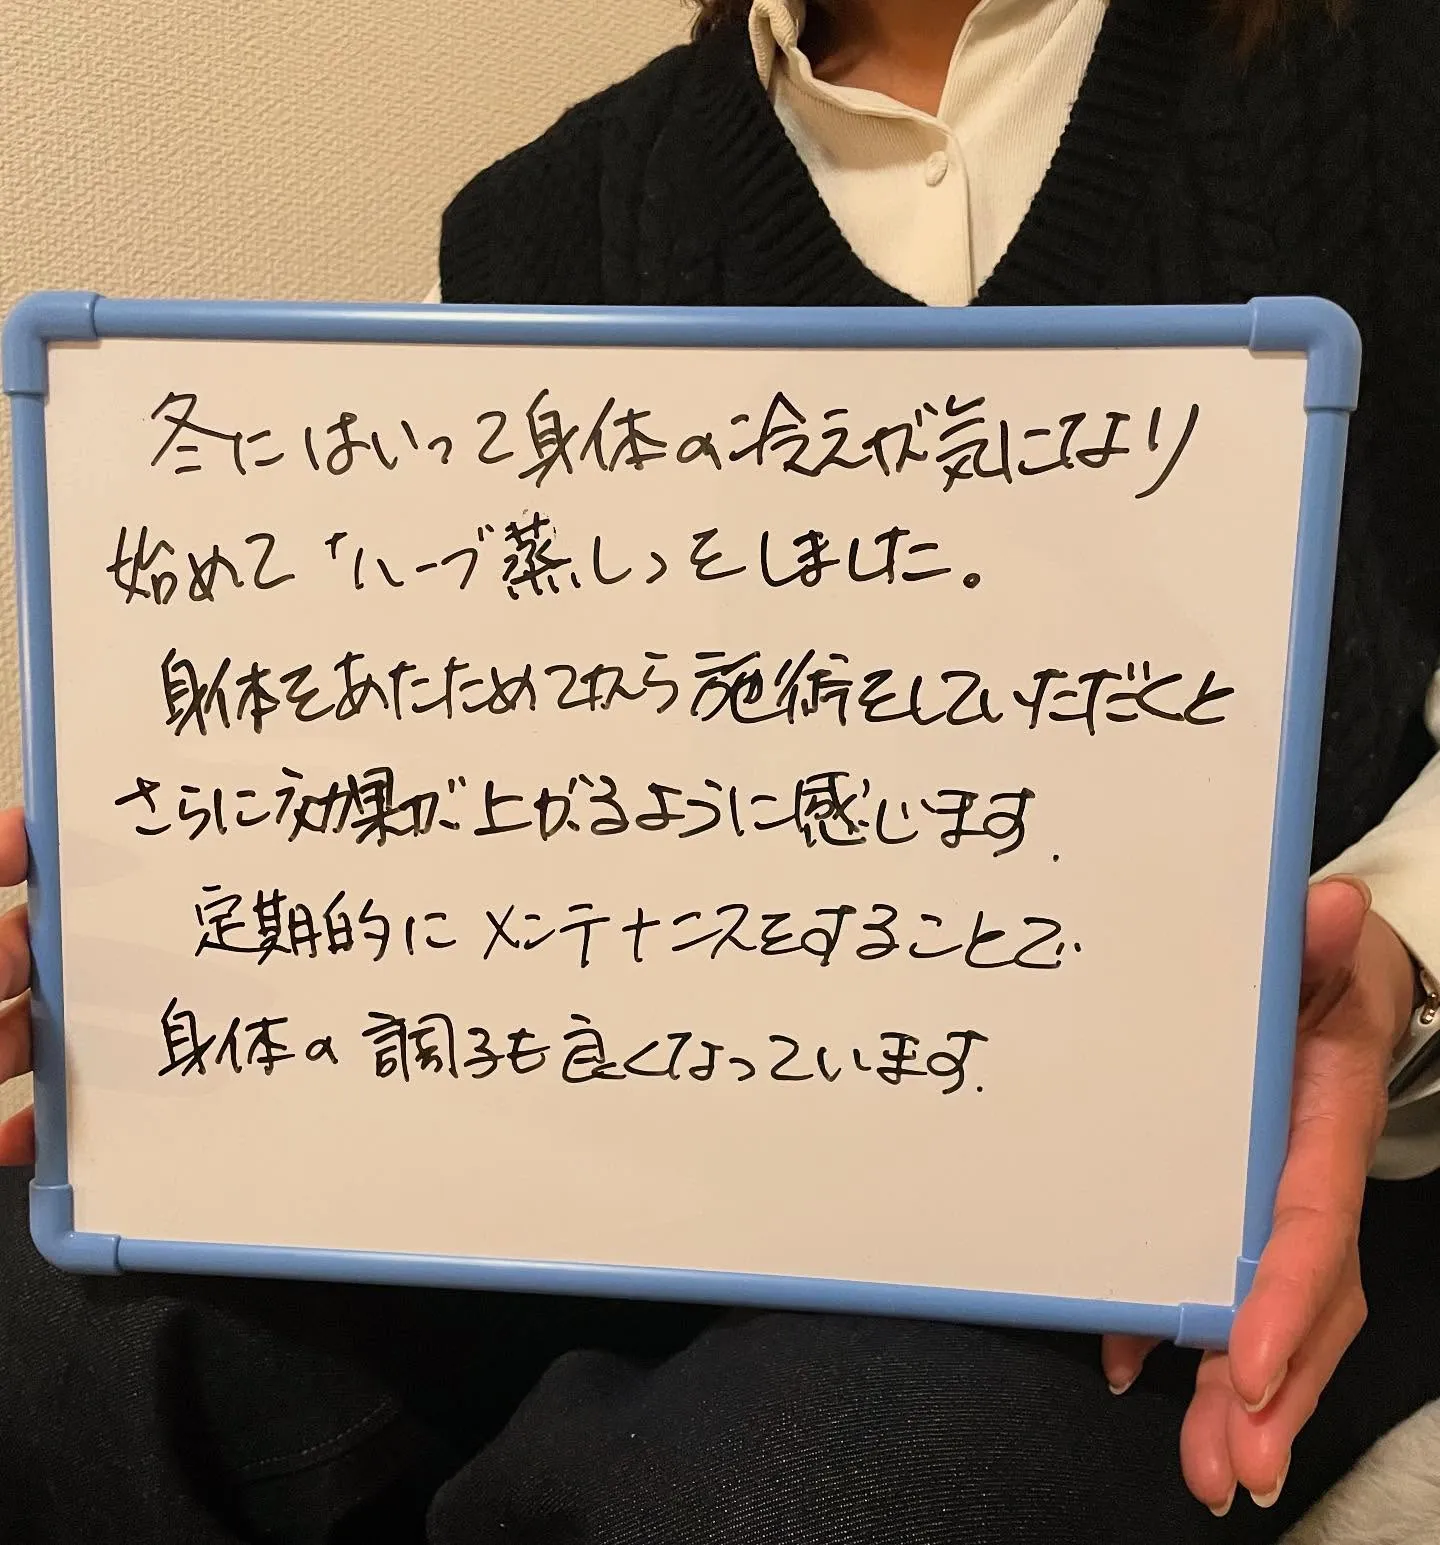 冬にはいって身体の冷えが気になり
始めて「ハーブ蒸し」をしました。
身体をあたためてから施術をしていただくと
さらに効果が上がるように感じます.
定期的にメンテナンスをすることで
身体の調子も良くなっています.